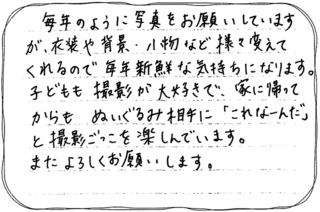 毎年のように写真をお願いしています
が、衣装や背景・小物など様々変えて
くれるので毎年新鮮な気持ちになります。
子どもも撮影が大好きで、家に帰って
からも ぬいぐるみ相手に「これなーんだ」
と撮影ごっこを楽しんでいます。
またよろしくお願いします。